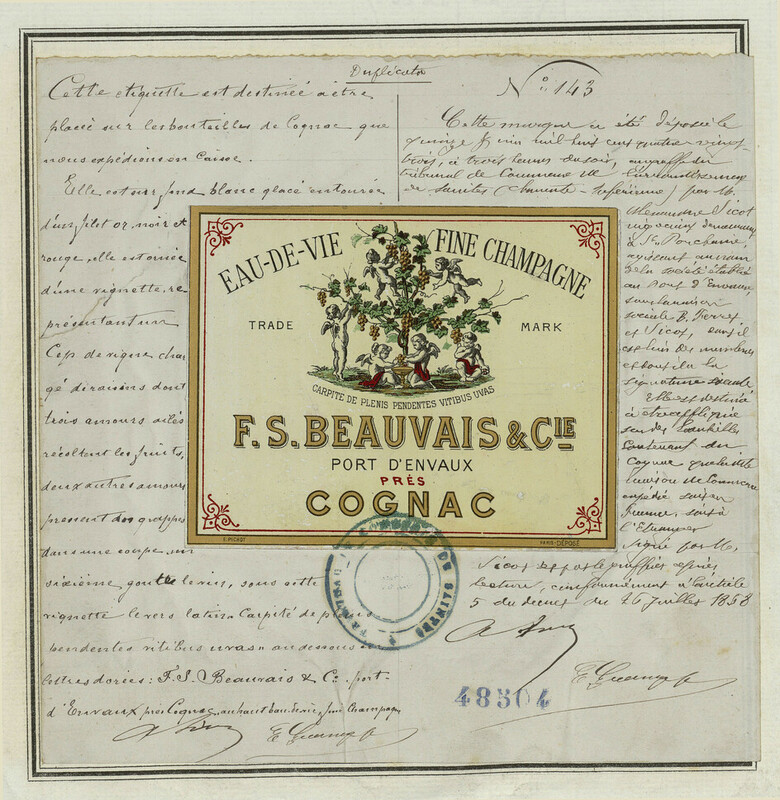 Duplicata
Cette etiquette est destinée à être
placée sur les bouteilles de Cognac que
nous expédions en Caisse.
Elle est sur fond blanc glacé entourée
d'un filet or, noir et
rouge, elle est ornée
d'une vignette, re
présentant un
Cep de vigne char
gé de raisins dont
trois amours ailés
récoltent les fruits,
deux autres amours
pressent des grappes
dans une coupe, un
sixième goutte le vin, sous cette
vignette le vers latin « Carpité de plenis
pendentes vitibus uvas » au dessous
lettres dorées: F. S. Beauvais & Cie port
d'Envaux près Cognac, au haut eau-de-vie, fine Champagne
N° 143
Cette marque a été déposée le
quinze Juin mil huit cent quatre vingt
trois, à trois heures du soir, au greffe du
tribunal de Commerce de l'arrondissement
de Saintes (Charente-Inférieure) par M.
Vicot
négociant demeurant
à St Porchaire,
agissant au nom
de la société établie
au Port d'Envaux,
sous la raison
sociale B.
et Vicot, dont il
est l'un des membres
et dont il a la
signature sociale
Elle est destinée
à être appliquée
sur des bouteilles
contenant du
Cognac que la dite
maison de Commerce
expédie soit en
France, soit à
l'Etranger
Signé par M.
Vicot et par le greffier après
lecture, conformément à l'article
5 du décret du 26 Juillet 1858
EAU-DE-VIE FINE CHAMPAGNE
TRADE MARK
CARPITE DE PLENIS PENDENTES VITIBUS UVAS
F. S. BEAUVAIS & CIE
PORT D'ENVAUX
PRÈS
COGNAC
E. PICHOT
PARIS-DÉPOSÉ
48504